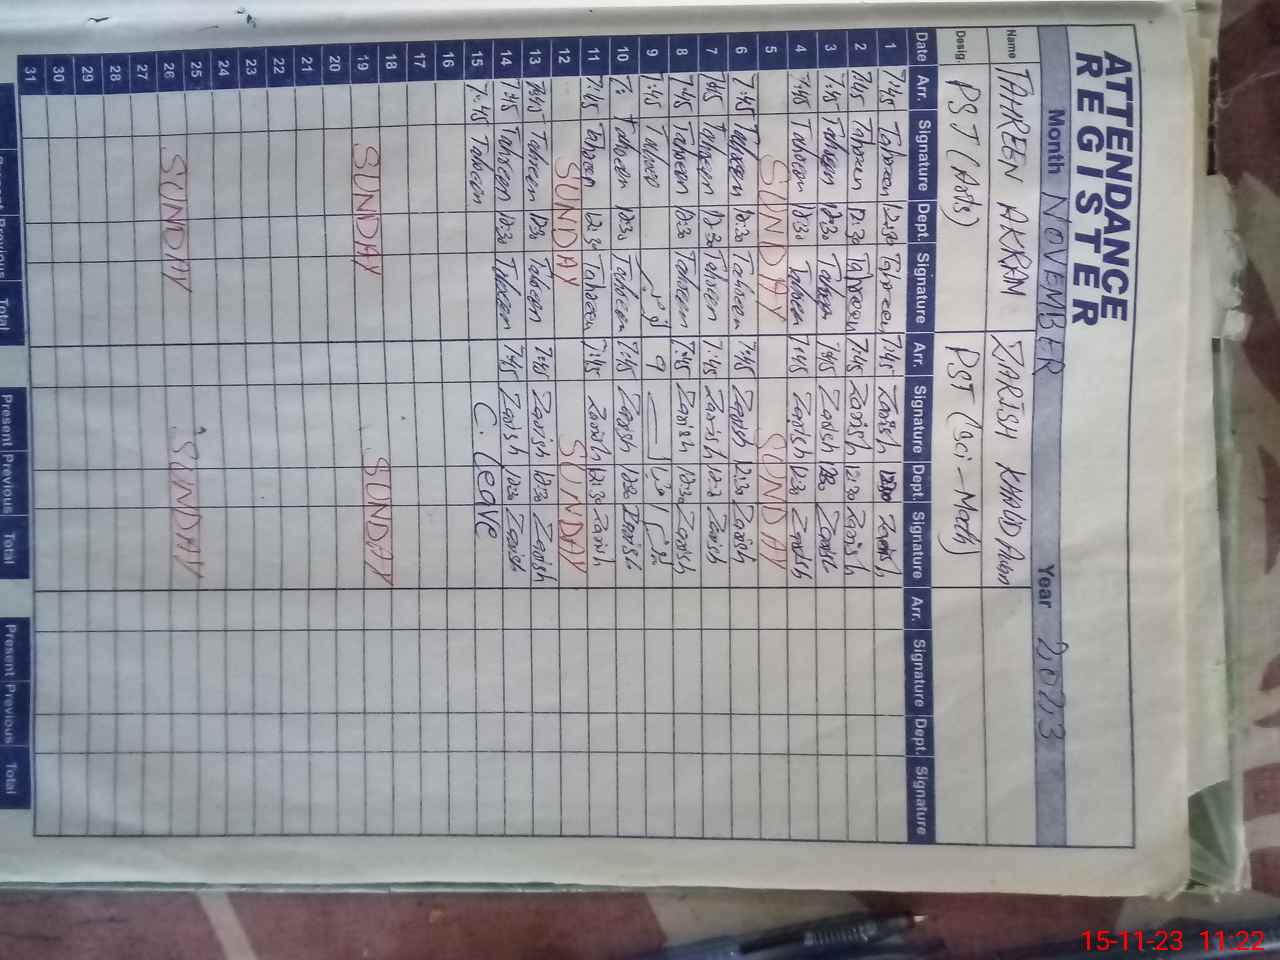 ATTENDANCE
REGISTER
Month NOVEMBER Year 2023
Name TAHREEN AKRAM ZARISH KHALID
Desig. PST (Arts) PST (Sci-Math)
Date Arr. Signature Dept. Signature Arr. Signature Dept. Signature Arr. Signature Dept. Signature
1 7:45 Tahreen 12:30 Tahreen 7:45 Zarish Zarish
2 7:45 Tahreen 12:30 Tahreen 7:45 Zarish 12:30 Zarish
3 7:45 Tahreen 12:30 Tahreen 7:45 Zarish 12:30 Zarish
4 7:45 Tahreen 12:30 Tahreen 7:45 Zarish 12:30 Zarish
5 SUNDAY SUNDAY
6 7:45 Tahreen 12:30 Tahreen 7:45 Zarish 12:30 Zarish
7 7:45 Tahreen 12:30 Tahreen 7:45 Zarish 12:30 Zarish
8 7:45 Tahreen 12:30 Tahreen 7:45 Zarish 12:30 Zarish
9 7:45 Tahreen 9
10 7: Tahreen 12:30 Tahreen 7:45 Zarish 12:30 Zarish
11 7:45 Tahreen 12:30 Tahreen 7:45 Zarish 12:30 Zarish
12 SUNDAY SUNDAY
13 7:45 Tahreen 12:30 Tahreen 7:45 Zarish 12:30 Zarish
14 7:45 Tahreen 12:30 Tahreen 7:45 Zarish 12:30 Zarish
15 7:45 Tahreen C. Leave
16
17
18
19 SUNDAY SUNDAY
20
21
22
23
24
25
26 SUNDAY SUNDAY
27
28
29
30
31
Present Previous Total Present Previous Total Present Previous Total
15-11-23 11:22